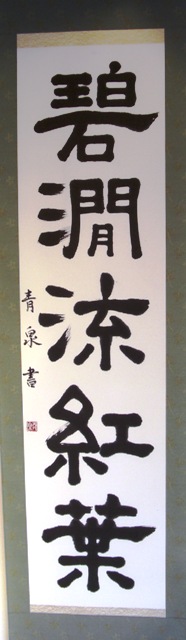 碧澗流紅葉
青泉書